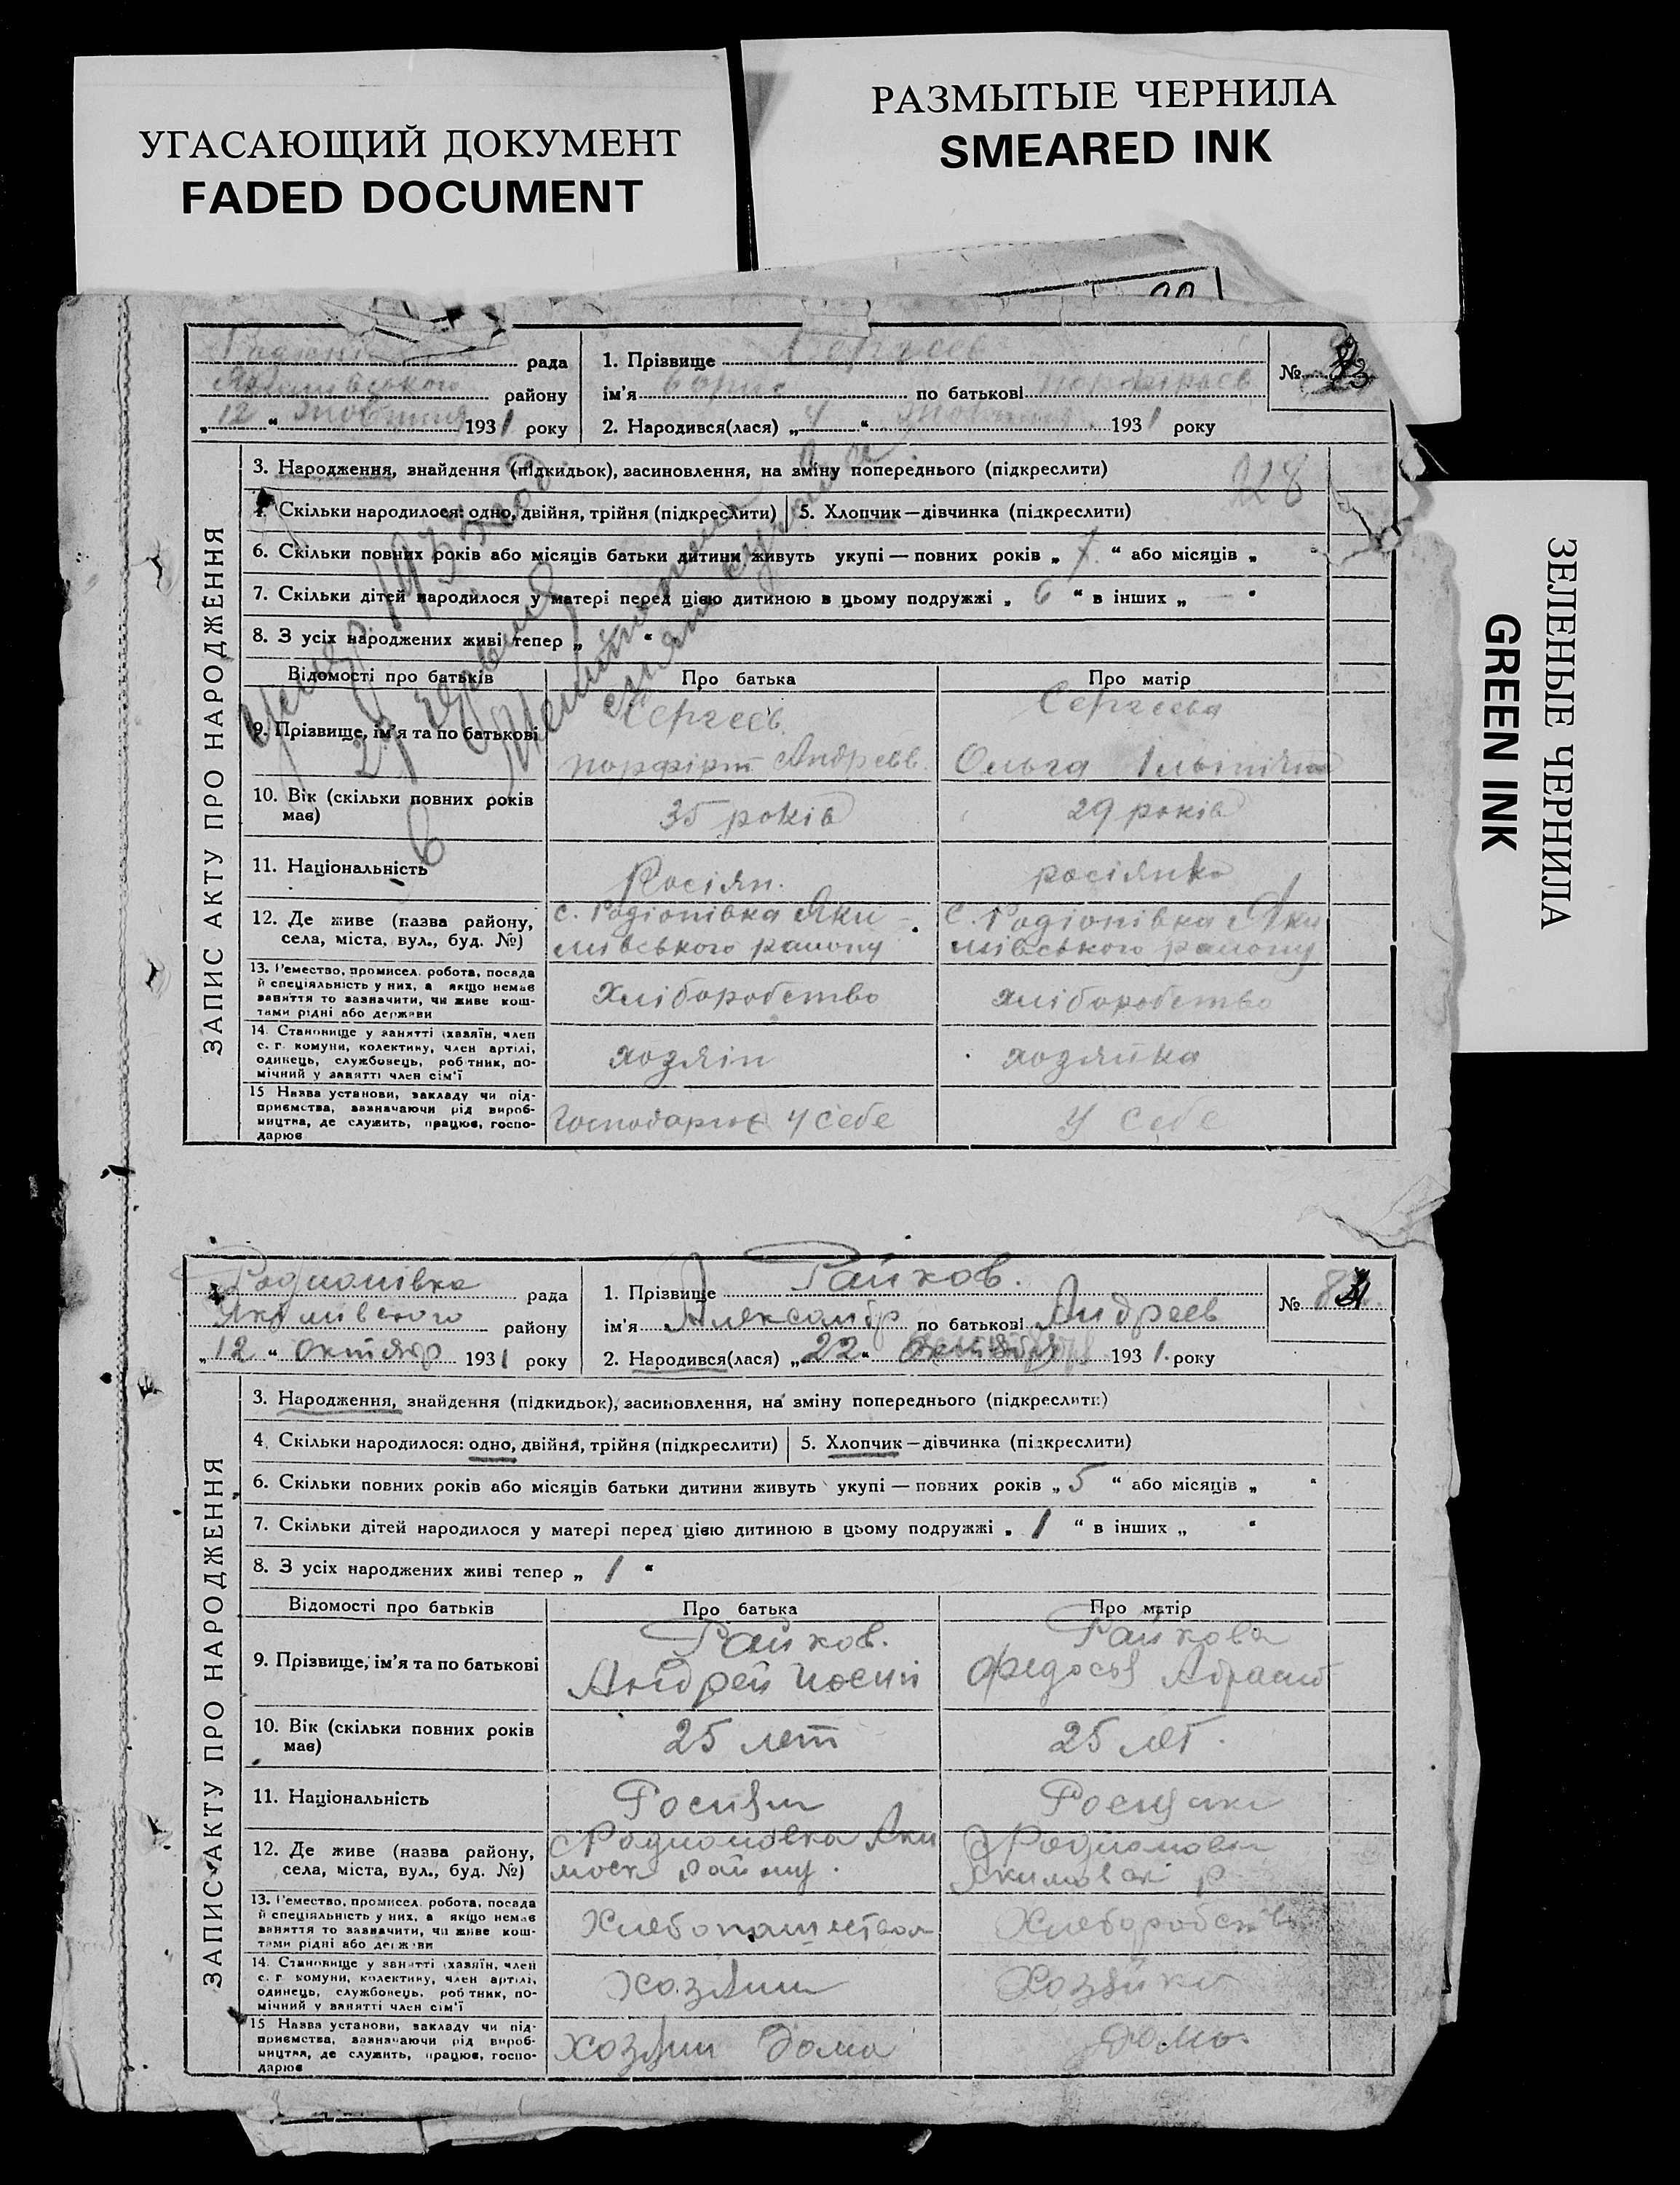 УГАСАЮЩИЙ ДОКУМЕНТ
FADED DOCUMENT
РАЗМЫТЫЕ ЧЕРНИЛА
SMEARED INK
ЗЕЛЕНЫЕ ЧЕРНИЛА
GREEN INK
рада
Якимівського району
„ 12 “ жовтня 1931 року
1. Прізвище Сергеев
ім'я Борис по батькові Порфірьев
2. Народився(лася) „ 4 “ жовтня 1931 року
№
ЗАПИС АКТУ ПРО НАРОДЖЕННЯ
3. Народження, знайдення (підкидьок), засиновлення, на зміну попереднього (підкреслити)
228
4. Скільки народилося: одно, двійня, трійня (підкреслити)
5. Хлопчик—дівчинка (підкреслити)
6. Скільки повних років або місяців батьки дитини живуть укупі — повних років „ “ або місяців „ “
7. Скільки дітей народилося у матері перед цією дитиною в цьому подружжі „ 6 “ в інших „ — “
8. З усіх народжених живі тепер „ “
Відомості про батьків
Про батька
Про матір
9. Прізвище, ім'я та по батькові
Сергеев
Порфірт Андреев.
Сергеева
Ольга
10. Вік (скільки повних років має)
35 років
29 років
11. Національність
Росіян.
росіянка
12. Де живе (назва району, села, міста, вул., буд. №)
с. Родіонівка Яки-
мівського району
с. Родіонівка Яки
мівського району
13. Ремество, промисел, робота, посада
й спеціяльність у них, а якщо немає
заняття то зазначити, чи живе кош-
тами рідні або держави
хліборобство
хліборобство
14. Становище у занятті (хазяїн, член
с. г. комуни, колективу, член артілі,
одинець, службовець, робітник, по-
мічний у занятті член сім'ї
хозяін
хозяйка
15 Назва установи, закладу чи під-
приємства, зазначаючи рід вироб-
ництва, де служить, працює, госпо-
дарює
Господарює у себе
у себе
Родионівка рада
Якимівского району
„ 12 “ Октябр 1931 року
1. Прізвище Райков.
ім'я Александр по батькові Андреев
2. Народився(лася) „ 22 “ 1931. року
№
ЗАПИС АКТУ ПРО НАРОДЖЕННЯ
3. Народження, знайдення (підкидьок), засиновлення, на зміну попереднього (підкреслити)
4. Скільки народилося: одно, двійня, трійня (підкреслити)
5. Хлопчик—дівчинка (підкреслити)
6. Скільки повних років або місяців батьки дитини живуть укупі — повних років „ 5 “ або місяців „ “
7. Скільки дітей народилося у матері перед цією дитиною в цьому подружжі „ 1 “ в інших „ “
8. З усіх народжених живі тепер „ 1 “
Відомості про батьків
Про батька
Про матір
9. Прізвище, ім'я та по батькові
Райков.
Андрей Иосип
Райкова
Федосья Абрам
10. Вік (скільки повних років має)
25 лет
25 лет.
11. Національність
Росиян
Росиянка
12. Де живе (назва району, села, міста, вул., буд. №)
Родионовка Яки
моск району.
Родионовка
Якимовск р
13. Ремество, промисел, робота, посада
й спеціяльність у них, а якщо немає
заняття то зазначити, чи живе кош-
тами рідні або держави
Хлебопашество
Хлеборобств
14. Становище у занятті (хазяїн, член
с. г. комуни, колективу, член артілі,
одинець, службовець, робітник, по-
мічний у занятті член сім'ї
Хозяин
Хозяйка
15 Назва установи, закладу чи під-
приємства, зазначаючи рід вироб-
ництва, де служить, працює, госпо-
дарює
Хозяин Дома
Дома